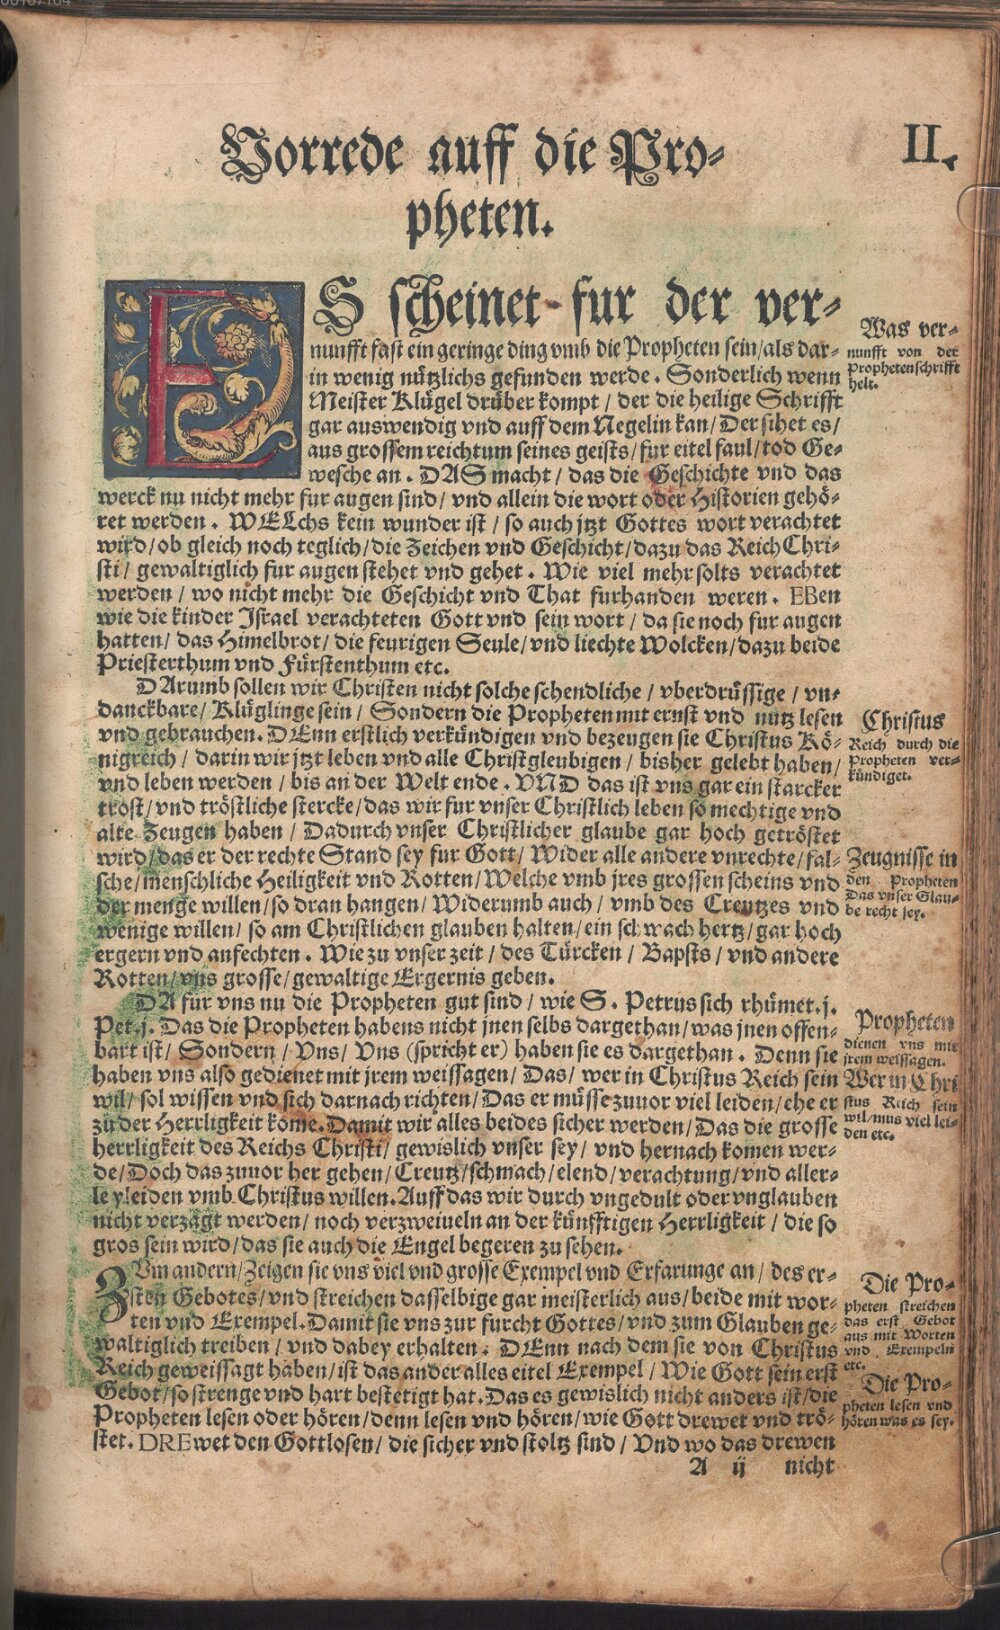 00107164
II.
Vorrede auff die Pro-
pheten.
ES scheinet fur der ver-
nunfft fast ein geringe ding vmb die Propheten sein/als dar-
in wenig nützlichs gefunden werde. Sonderlich wenn
Meister Klügel drüber kompt / der die heilige Schrifft
gar auswendig vnd auff dem Negelin kan/Der sihet es/
aus grossem reichtum seines geists/fur eitel faul/tod Ge-
wesche an. DAS macht / das die Geschichte vnd das
werck nu nicht mehr fur augen sind/ vnd allein die wort oder Historien gehö-
ret werden. WELchs kein wunder ist / so auch jtzt Gottes wort verachtet
wird/ob gleich noch teglich/die Zeichen vnd Geschicht/dazu das Reich Chri-
sti/ gewaltiglich fur augen stehet vnd gehet. Wie viel mehr solts verachtet
werden / wo nicht mehr die Geschicht vnd That furhanden weren. EBen
wie die kinder Israel verachteten Gott vnd sein wort / da sie noch fur augen
hatten/ das Himelbrot/ die feurigen Seule/vnd liechte Wolcken/dazu beide
Priesterthum vnd Fürstenthum etc.
DArumb sollen wir Christen nicht solche schendliche / vberdrüssige / vn-
danckbare/ Klüglinge sein / Sondern die Propheten mit ernst vnd nutz lesen
vnd gebrauchen. DEnn erstlich verkündigen vnd bezeugen sie Christus Kö-
nigreich / darin wir jtzt leben vnd alle Christgleubigen / bisher gelebt haben/
vnd leben werden / bis an der Welt ende. VND das ist vns gar ein starcker
trost/vnd tröstliche stercke/das wir fur vnser Christlich leben so mechtige vnd
alte Zeugen haben / Dadurch vnser Christlicher glaube gar hoch getröstet
wird/das er der rechte Stand sey fur Gott/ Wider alle andere vnrechte/fal-
sche/menschliche Heiligkeit vnd Rotten/Welche vmb jres grossen scheins vnd
der menge willen/so dran hangen/ Widerumb auch / vmb des Creutzes vnd
wenige willen/ so am Christlichen glauben halten/ein schwach hertz/gar hoch
ergern vnd anfechten. Wie zu vnser zeit / des Türcken / Bapsts / vnd andere
Rotten/vns grosse/gewaltige Ergernis geben.
DA fur vns nu die Propheten gut sind / wie S. Petrus sich rhümet.j.
Pet.j. Das die Propheten habens nicht jnen selbs dargethan/was jnen offen-
bart ist/ Sondern / Vns/ Vns (spricht er) haben sie es dargethan. Denn sie
haben vns also gedienet mit jrem weissagen/ Das/ wer in Christus Reich sein
wil/ sol wissen vnd sich darnach richten/Das er müsse zuuor viel leiden/ehe er
zu der Herrligkeit kome. Damit wir alles beides sicher werden/Das die grosse
herrligkeit des Reichs Christi/ gewislich vnser sey/ vnd hernach komen wer-
de/Doch das zuuor her gehen/Creutz/schmach/elend/verachtung/vnd aller-
ley leiden vmb Christus willen. Auff das wir durch vngedult oder vnglauben
nicht verzagt werden/ noch verzweiueln an der künfftigen Herrligkeit / die so
gros sein wird/das sie auch die Engel begeren zu sehen.
ZVm andern/Zeigen sie vns viel vnd grosse Exempel vnd Erfarunge an/ des er-
sten Gebotes/vnd streichen dasselbige gar meisterlich aus/beide mit wor-
ten vnd Exempel. Damit sie vns zur furcht Gottes/vnd zum Glauben ge-
waltiglich treiben / vnd dabey erhalten. DEnn nach dem sie von Christus
Reich geweissagt haben/ist das ander alles eitel Exempel / Wie Gott sein erst
Gebot/so strenge vnd hart bestetigt hat. Das es gewislich nicht anders ist/die
Propheten lesen oder hören/denn lesen vnd hören/wie Gott drewet vnd trö-
stet. DREwet den Gottlosen/ die sicher vnd stoltz sind / Vnd wo das drewen
A ij nicht
Was ver-
nunfft von der
Prophetenschrifft
helt.
Christus
Reich durch die
Propheten ver-
kündiget.
Zeugnisse in
den Propheten
Das vnser Glau-
be recht sey.
Propheten
dienen vns mit
jrem weissagen.
Wer in Chri
stus Reich sein
wil/mus viel lei-
den etc.
Die Pro-
pheten streichen
das erst Gebot
aus mit Worten
vnd Exempeln
etc.
Die Pro-
pheten lesen vnd
hören was es sey.